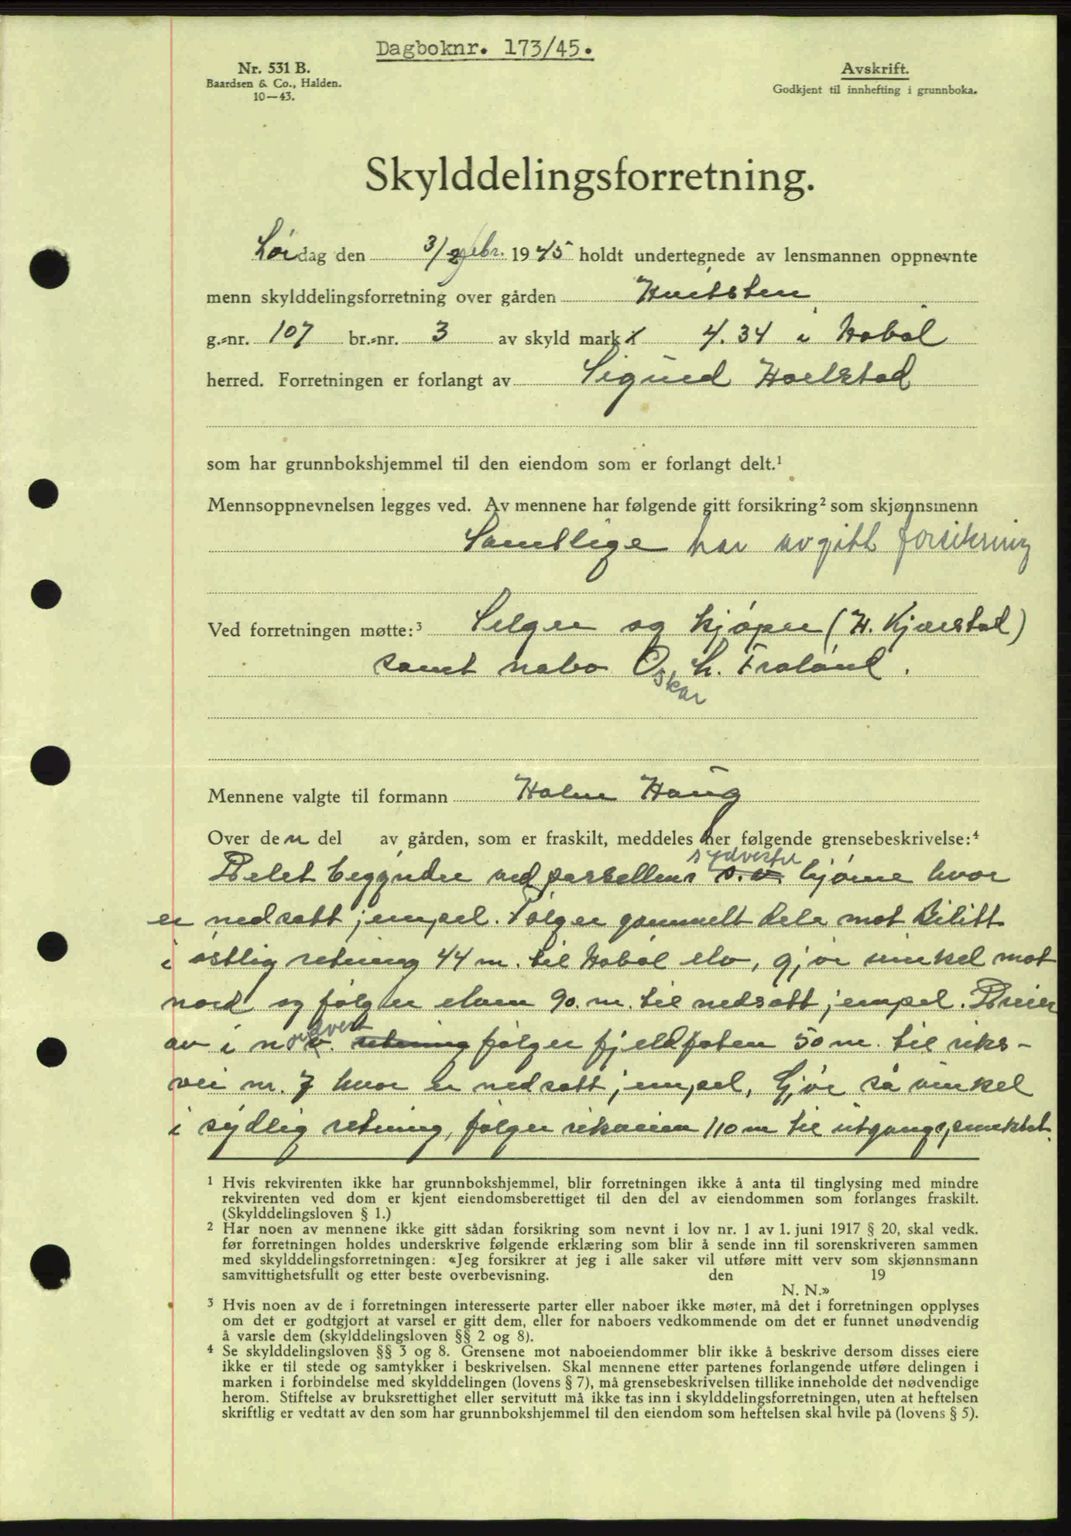 Dagboknr. 173/45.
Nr. 531 B.
Baardsen & Co., Halden.
10—43.
Avskrift.
Godkjent til innhefting i grunnboka.
Skylddelingsforretning.
Lørdag den 3/2 febr. 1945 holdt undertegnede av lensmannen oppnevnte
menn skylddelingsforretning over gården Hvitsten
g.-nr. 107 br.-nr. 3 av skyld mark 4.34 i Hobøl
herred. Forretningen er forlangt av Sigurd
som har grunnbokshjemmel til den eiendom som er forlangt delt.¹
Mennsoppnevnelsen legges ved. Av mennene har følgende gitt forsikring² som skjønnsmenn
Samtlige har avgitt forsikring
Ved forretningen møtte:³ Selger og kjøper (H. Kjærstad)
samt nabo Oskar L. Frøland.
Mennene valgte til formann Halvor Haug
Over den del av gården, som er fraskilt, meddeles her følgende grensebeskrivelse:⁴
Delet begynder ved parsellens s.v. sydvestre hjørne hvor
er nedsatt jernpel. Følger gammelt dele mot
i østlig retning 44 m. til Hobøl elv, gjør vinkel mot
nord og følger elven 90 m. til nedsatt jernpel. Dreier
av i nordvest retning følger fjeldfoten 50 m. til riks-
vei nr. 7 hvor er nedsatt jernpel, Gjør så vinkel
i sydlig retning, følger riksveien 110 m til utgangspunktet.
¹ Hvis rekvirenten ikke har grunnbokshjemmel, blir forretningen ikke å anta til tinglysing med mindre
rekvirenten ved dom er kjent eiendomsberettiget til den del av eiendommen som forlanges fraskilt.
(Skylddelingsloven § 1.)
² Har noen av mennene ikke gitt sådan forsikring som nevnt i lov nr. 1 av 1. juni 1917 § 20, skal vedk.
før forretningen holdes underskrive følgende erklæring som blir å sende inn til sorenskriveren sammen
med skylddelingsforretningen: «Jeg forsikrer at jeg i alle saker vil utføre mitt verv som skjønnsmann
samvittighetsfullt og etter beste overbevisning. den 19
N. N.»
³ Hvis noen av de i forretningen interesserte parter eller naboer ikke møter, må det i forretningen opplyses
om det er godtgjort at varsel er gitt dem, eller for naboers vedkommende om det er funnet unødvendig
å varsle dem (skylddelingsloven §§ 2 og 8).
⁴ Se skylddelingsloven §§ 3 og 8. Grensene mot naboeiendommer blir ikke å beskrive dersom disses eiere
ikke er til stede og samtykker i beskrivelsen. Skal mennene etter partenes forlangende utføre delingen i
marken i forbindelse med skylddelingen (lovens § 7), må grensebeskrivelsen tillike inneholde det nødvendige
herom. Stiftelse av bruksrettighet eller servitutt må ikke tas inn i skylddelingsforretningen, uten at heftelsen
skriftlig er vedtatt av den som har grunnbokshjemmel til den eiendom som heftelsen skal hvile på (lovens § 5).